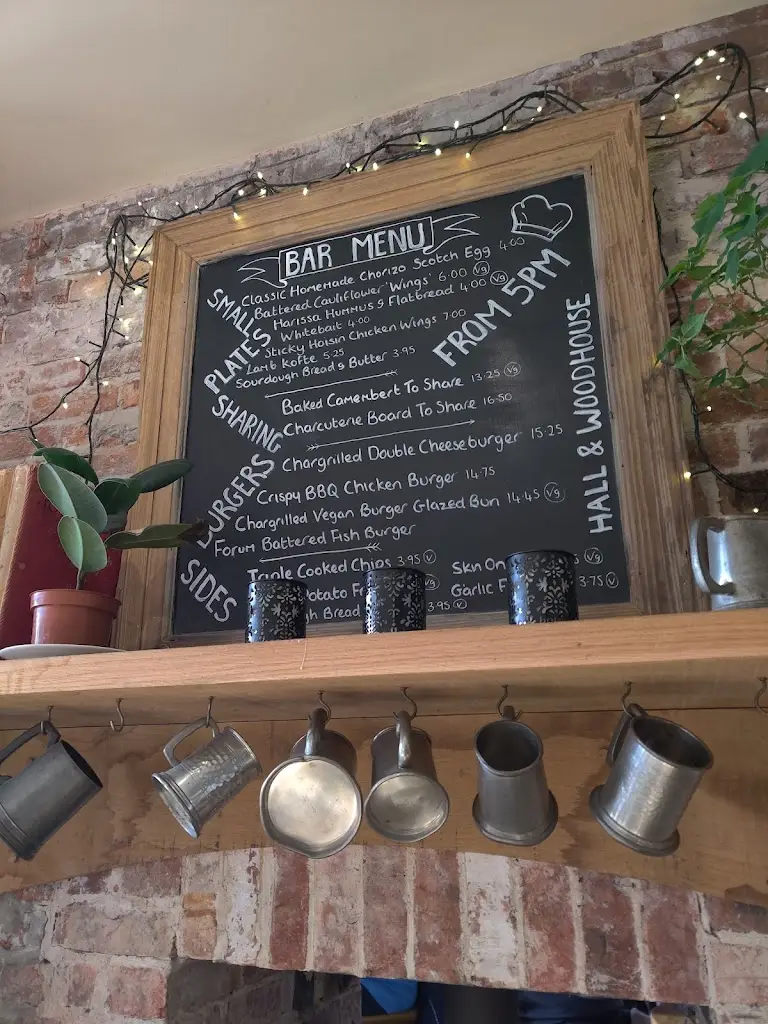 BAR MENU
SMALL PLATES
Classic Homemade Chorizo Scotch Egg 4.00
Battered Cauliflower 'Wings' 6.00 Vg
Harissa Hummus & Flatbread 4.00 Vg
Whitebait 4.00
Sticky Hoisin Chicken Wings 7.00
Lamb Kofte 5.25
Sourdough Bread & Butter 3.95
FROM 5PM
SHARING
Baked Camembert To Share 13.25 Vg
Charcuterie Board To Share 16.50
BURGERS
Chargrilled Double Cheeseburger 15.25
Crispy BBQ Chicken Burger 14.75
Chargrilled Vegan Burger Glazed Bun 14.45 Vg
Forum Battered Fish Burger
SIDES
Triple Cooked Chips 3.95 V
Potato Vg
Bread 3.95 V
Skn On Vg
Garlic 3.75 V
HALL & WOODHOUSE